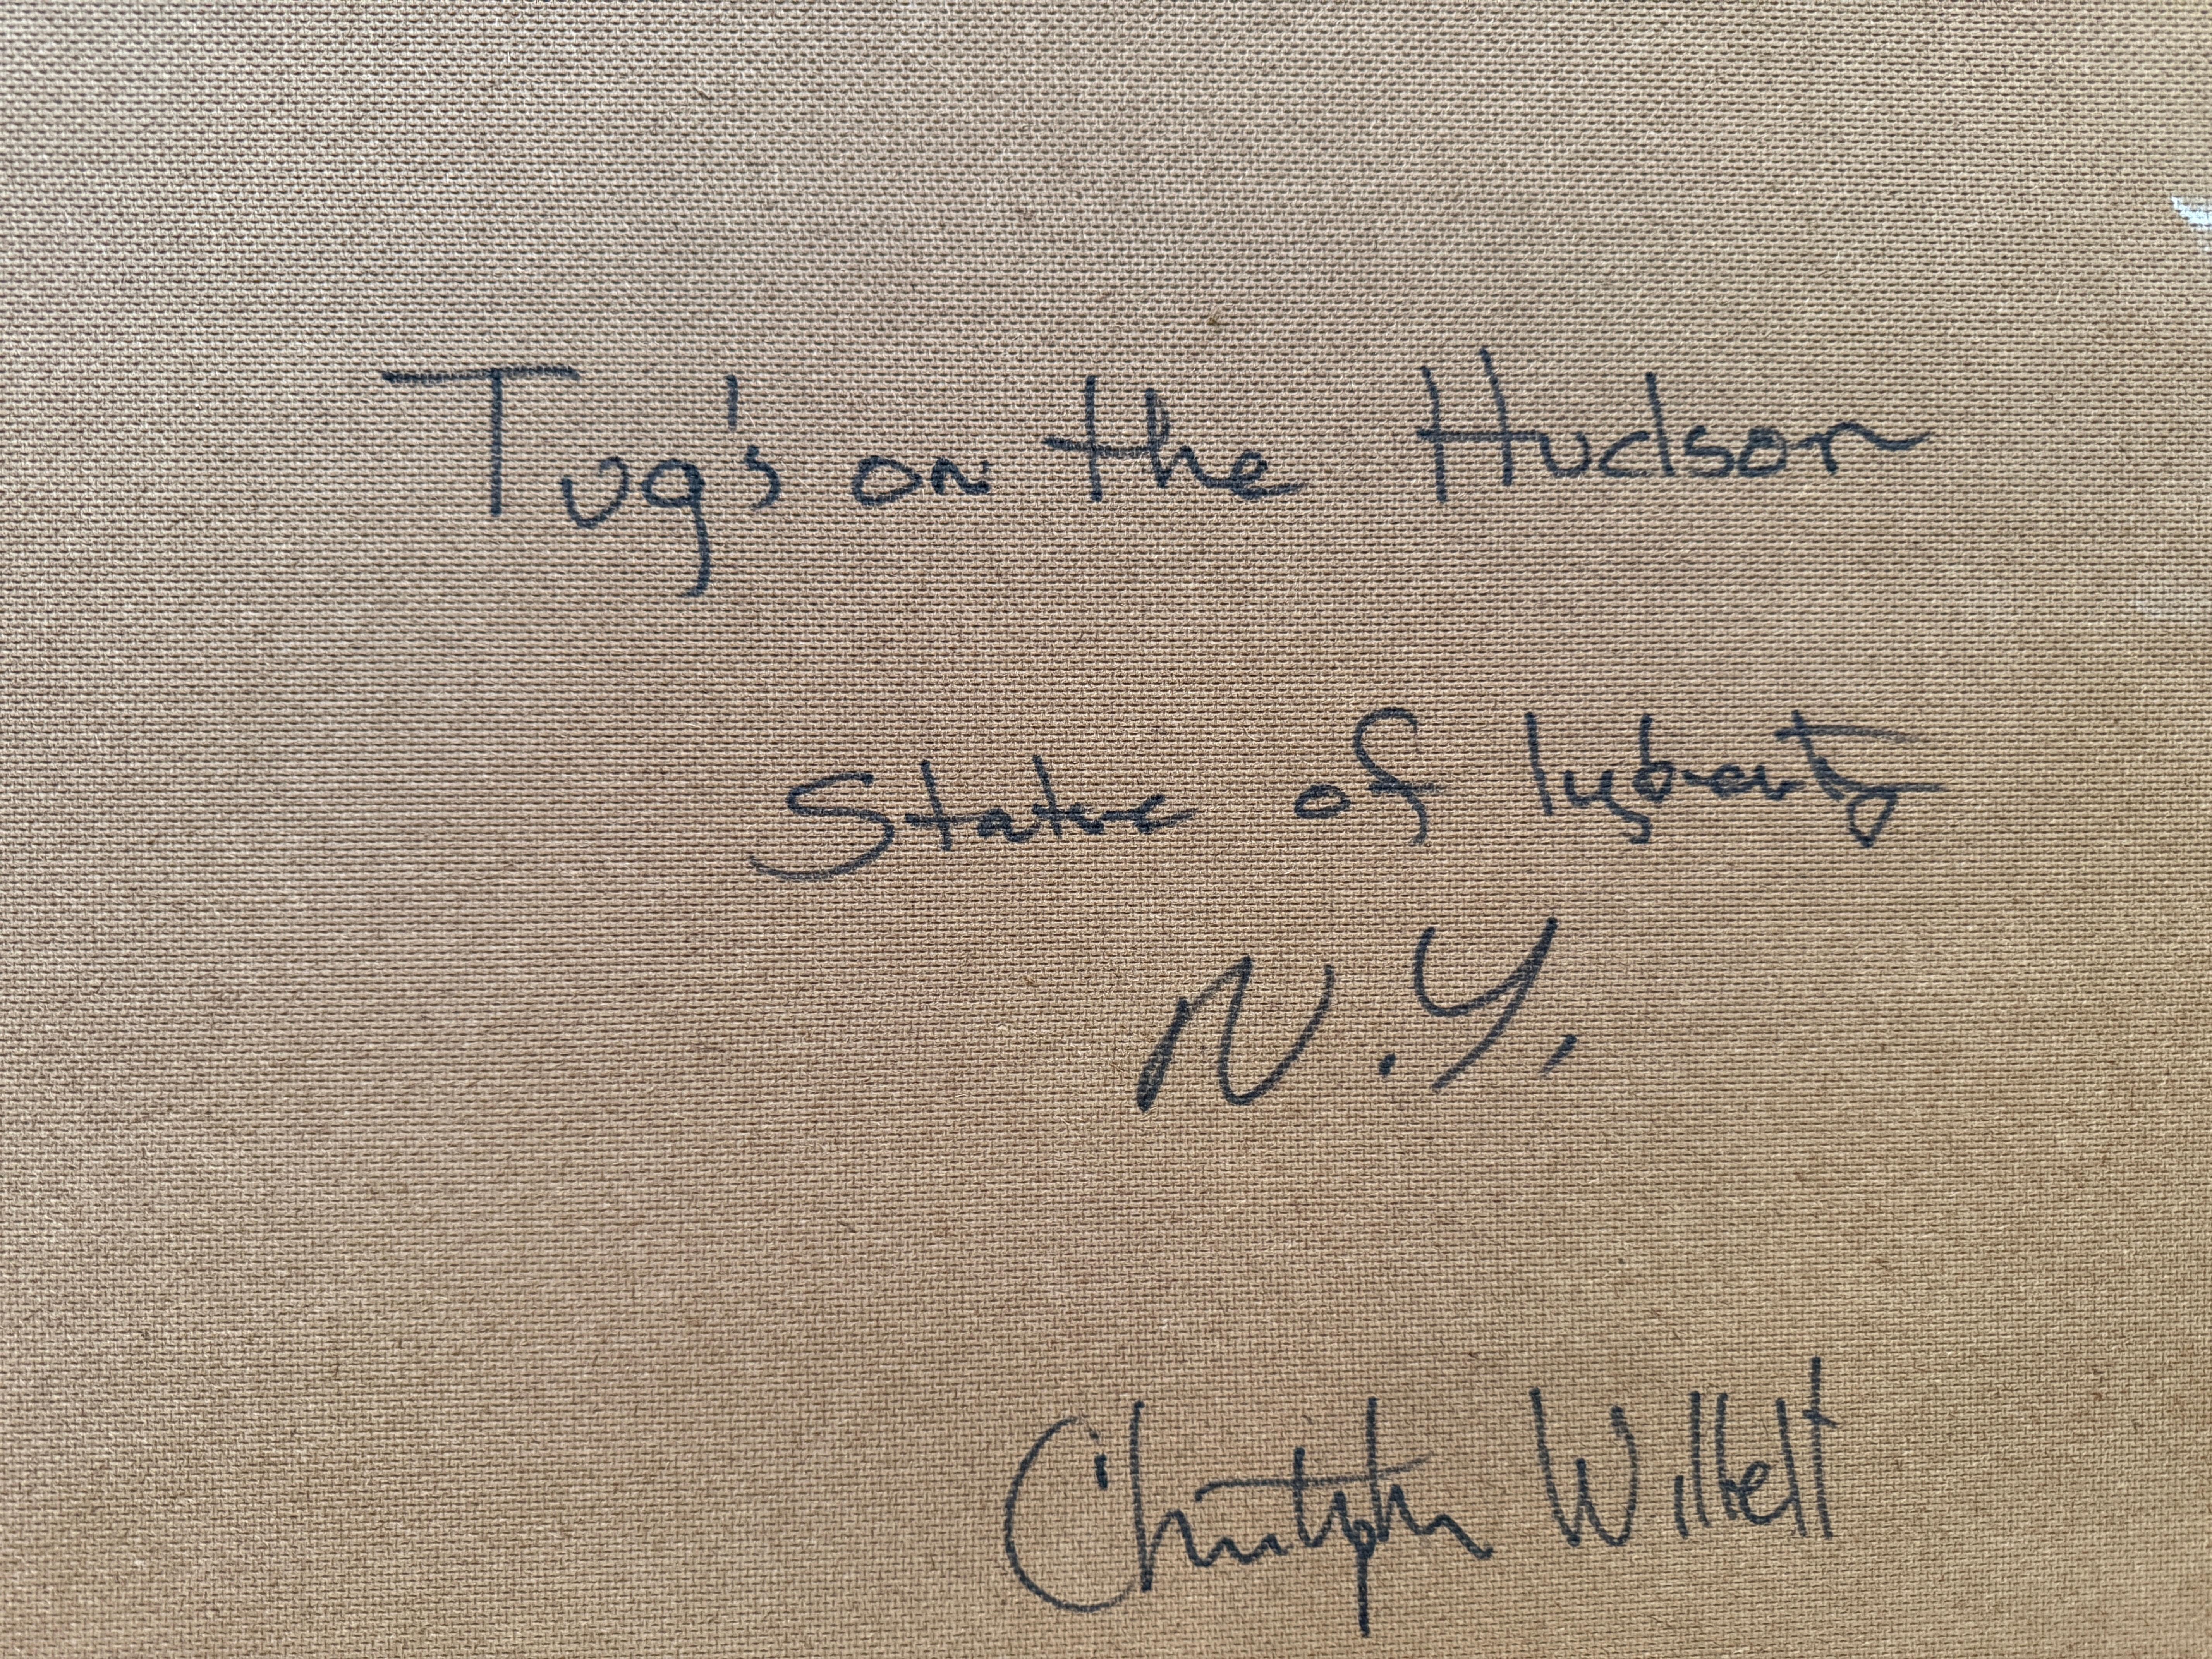 Tug's on the Hudson
Statue of lyberty
N.Y.
Christopher Willett